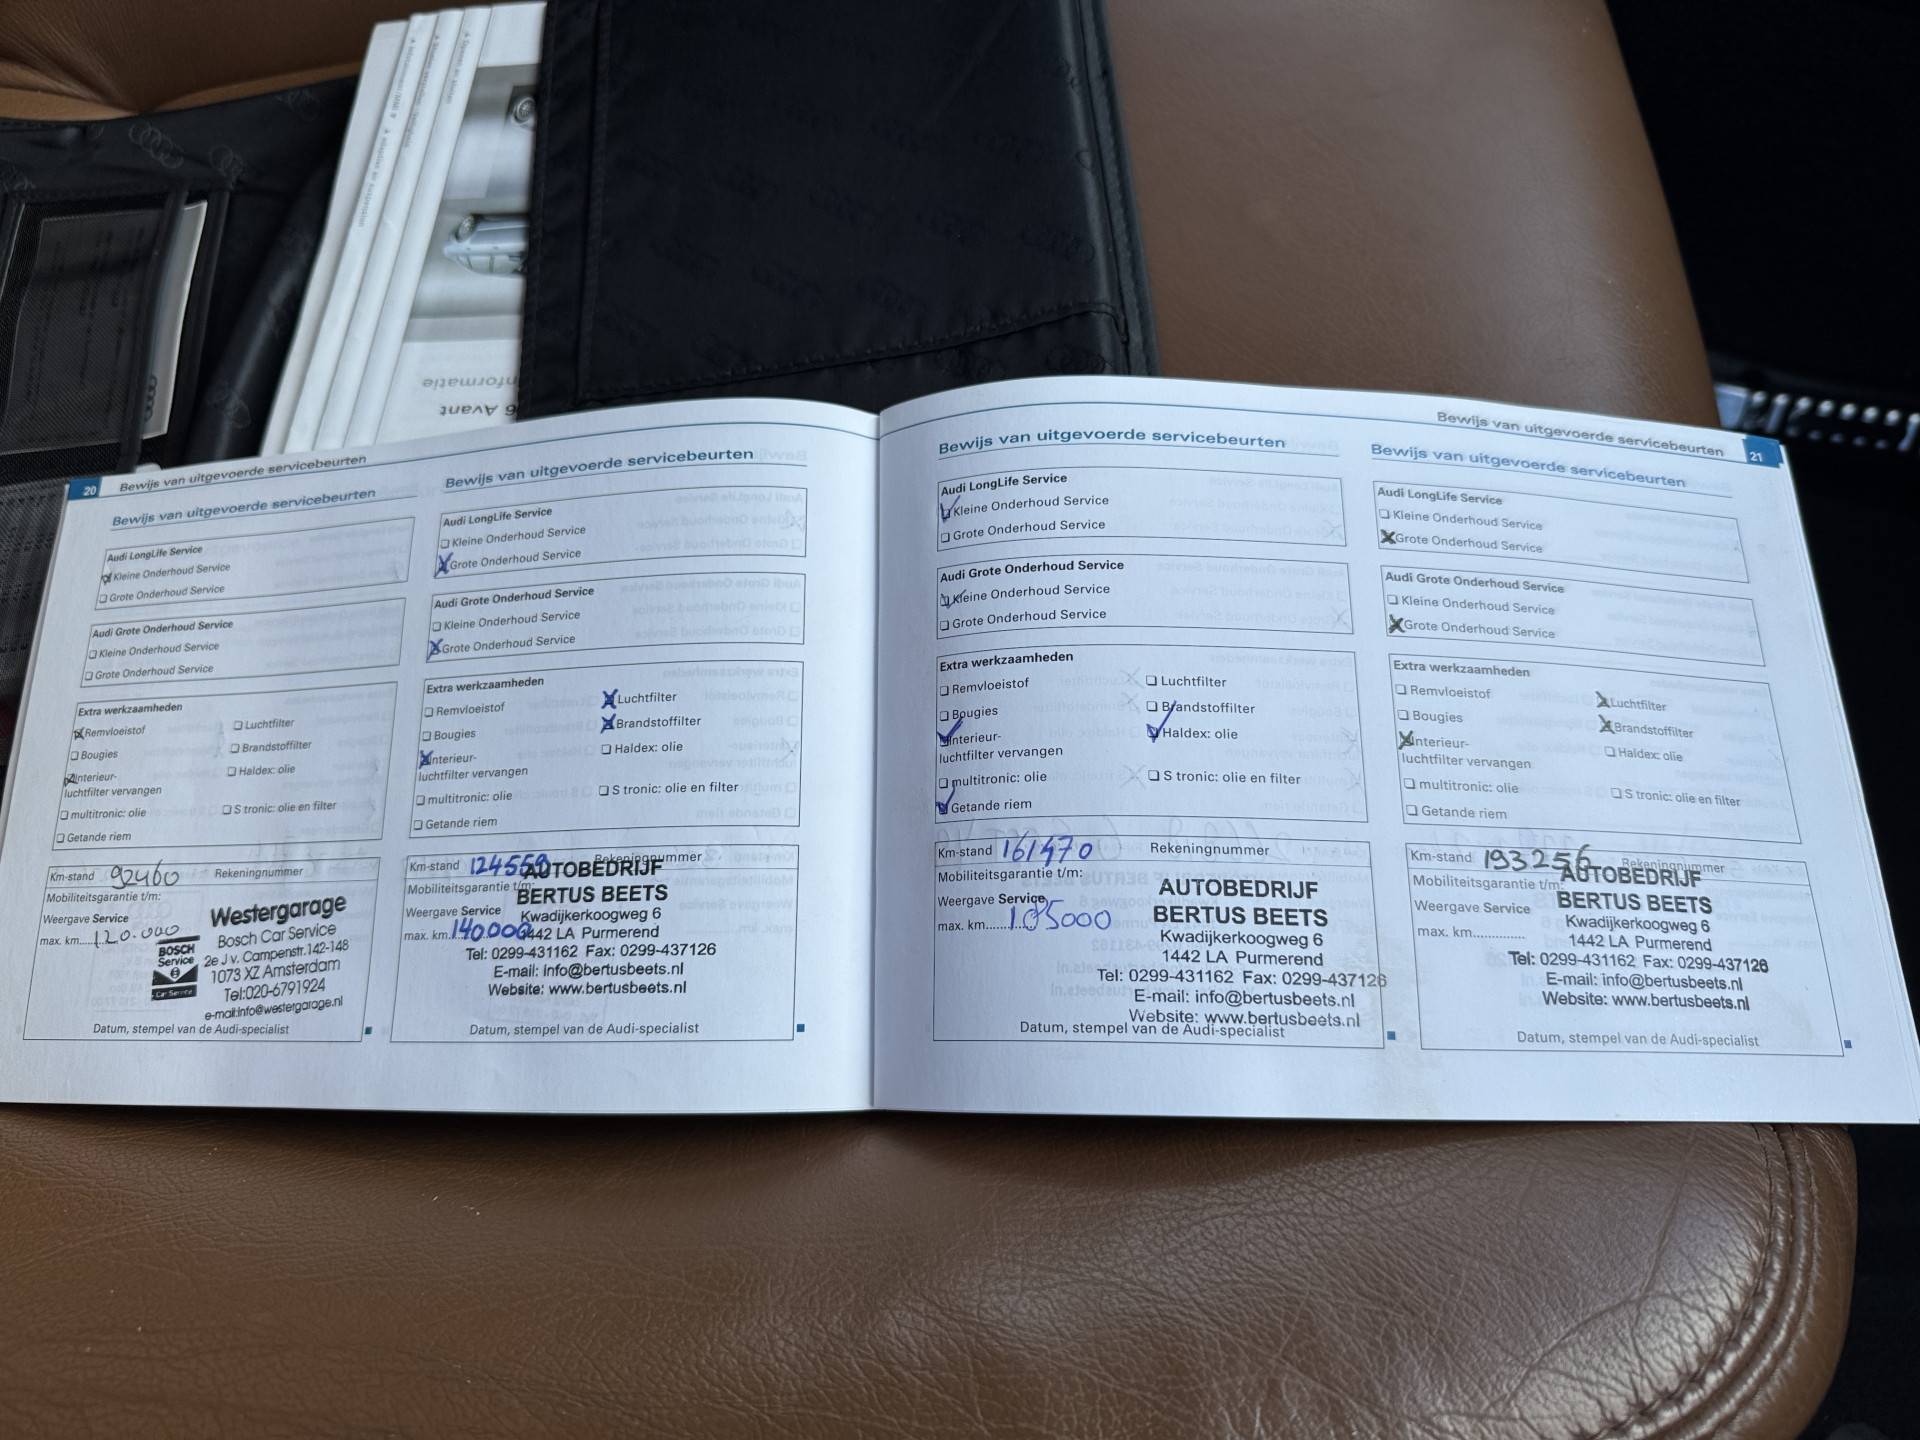 nformatie
6 Avant
20 Bewijs van uitgevoerde servicebeurten
Bewijs van uitgevoerde servicebeurten
Audi LongLife Service
Kleine Onderhoud Service
Grote Onderhoud Service
Audi Grote Onderhoud Service
Kleine Onderhoud Service
Grote Onderhoud Service
Extra werkzaamheden
Remvloeistof
Luchtfilter
Bougies
Brandstoffilter
Interieur-
luchtfilter vervangen
Haldex: olie
multitronic: olie
S tronic: olie en filter
Getande riem
Km-stand 92460
Rekeningnummer
Mobiliteitsgarantie t/m:
Weergave Service
max. km......120.000
Westergarage
Bosch Car Service
2e J v. Campenstr. 142-148
1073 XZ Amsterdam
Tel:020-6791924
e-mail:info@westergarage.nl
BOSCH
Service
Car Service
Datum, stempel van de Audi-specialist
Bewijs van uitgevoerde servicebeurten
Audi LongLife Service
Kleine Onderhoud Service
Grote Onderhoud Service
Audi Grote Onderhoud Service
Kleine Onderhoud Service
Grote Onderhoud Service
Extra werkzaamheden
Remvloeistof
Luchtfilter
Bougies
Brandstoffilter
Interieur-
luchtfilter vervangen
Haldex: olie
multitronic: olie
S tronic: olie en filter
Getande riem
Km-stand 124550
Rekeningnummer
Mobiliteitsgarantie t/m:
Weergave Service
max. km. 140.000
AUTOBEDRIJF
BERTUS BEETS
Kwadijkerkoogweg 6
1442 LA Purmerend
Tel: 0299-431162 Fax: 0299-437126
E-mail: info@bertusbeets.nl
Website: www.bertusbeets.nl
Datum, stempel van de Audi-specialist
Bewijs van uitgevoerde servicebeurten 21
Bewijs van uitgevoerde servicebeurten
Audi LongLife Service
Kleine Onderhoud Service
Grote Onderhoud Service
Audi Grote Onderhoud Service
Kleine Onderhoud Service
Grote Onderhoud Service
Extra werkzaamheden
Remvloeistof
Luchtfilter
Bougies
Brandstoffilter
Interieur-
luchtfilter vervangen
Haldex: olie
multitronic: olie
S tronic: olie en filter
Getande riem
Km-stand 161470
Rekeningnummer
Mobiliteitsgarantie t/m:
Weergave Service
max. km.......185000
AUTOBEDRIJF
BERTUS BEETS
Kwadijkerkoogweg 6
1442 LA Purmerend
Tel: 0299-431162 Fax: 0299-437126
E-mail: info@bertusbeets.nl
Website: www.bertusbeets.nl
Datum, stempel van de Audi-specialist
Bewijs van uitgevoerde servicebeurten
Audi LongLife Service
Kleine Onderhoud Service
Grote Onderhoud Service
Audi Grote Onderhoud Service
Kleine Onderhoud Service
Grote Onderhoud Service
Extra werkzaamheden
Remvloeistof
Luchtfilter
Bougies
Brandstoffilter
Interieur-
luchtfilter vervangen
Haldex: olie
multitronic: olie
S tronic: olie en filter
Getande riem
Km-stand 193256
Rekeningnummer
Mobiliteitsgarantie t/m:
Weergave Service
max. km.............
AUTOBEDRIJF
BERTUS BEETS
Kwadijkerkoogweg 6
1442 LA Purmerend
Tel: 0299-431162 Fax: 0299-437126
E-mail: info@bertusbeets.nl
Website: www.bertusbeets.nl
Datum, stempel van de Audi-specialist